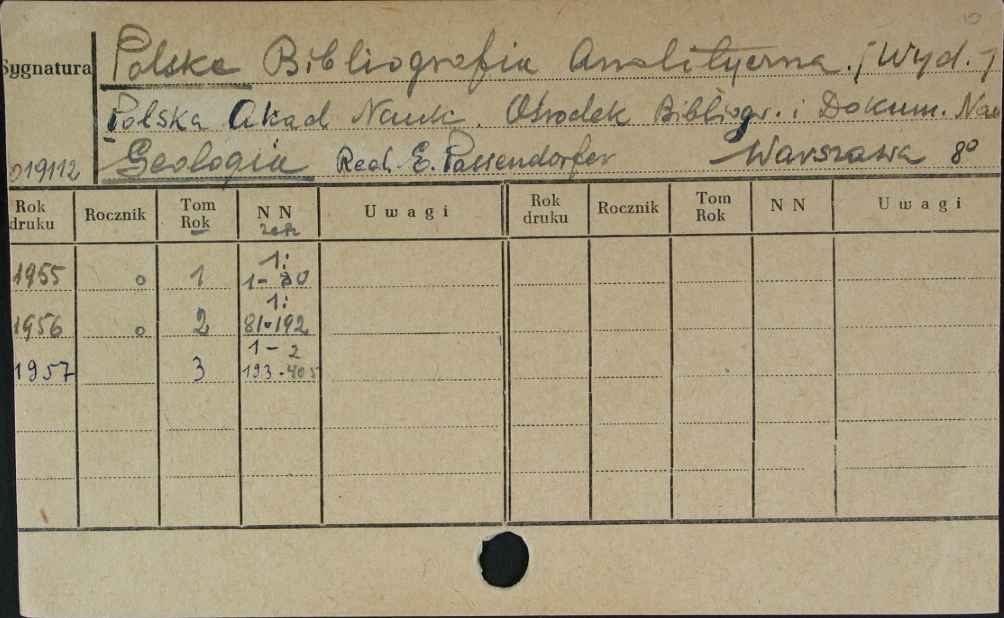 Sygnatura Polska Bibliografia Analityczna. [Wyd.]
Polska Akad. Nauk. Ośrodek Bibliogr. i Dokum. Nau
019112 Geologia Red. E. Passendorfer Warszawa 8º
Rok druku Rocznik Tom Rok N N U w a g i Rok druku Rocznik Tom Rok N N U w a g i
1955 o 1 1: 1-80
1956 o 2 1: 81-192
1957 3 1-2 193-405